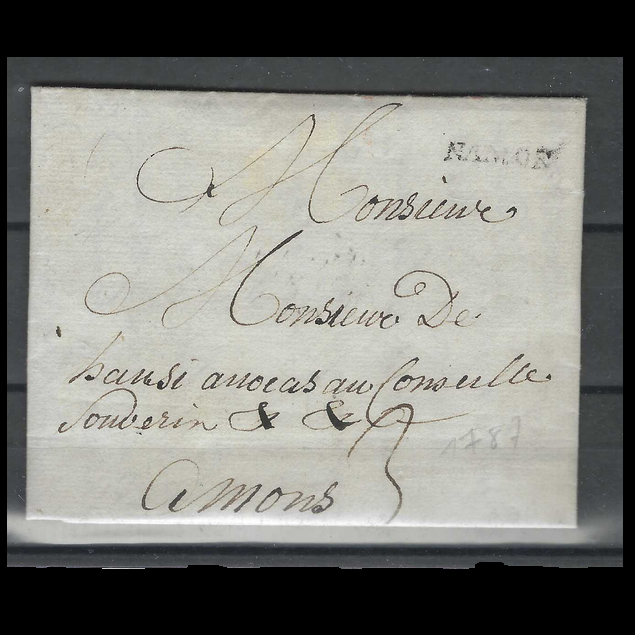 NAMUR
Monsieur
Monsieur De
hansi avocas au Conseille
Souverin & & &
3
1787
a mons